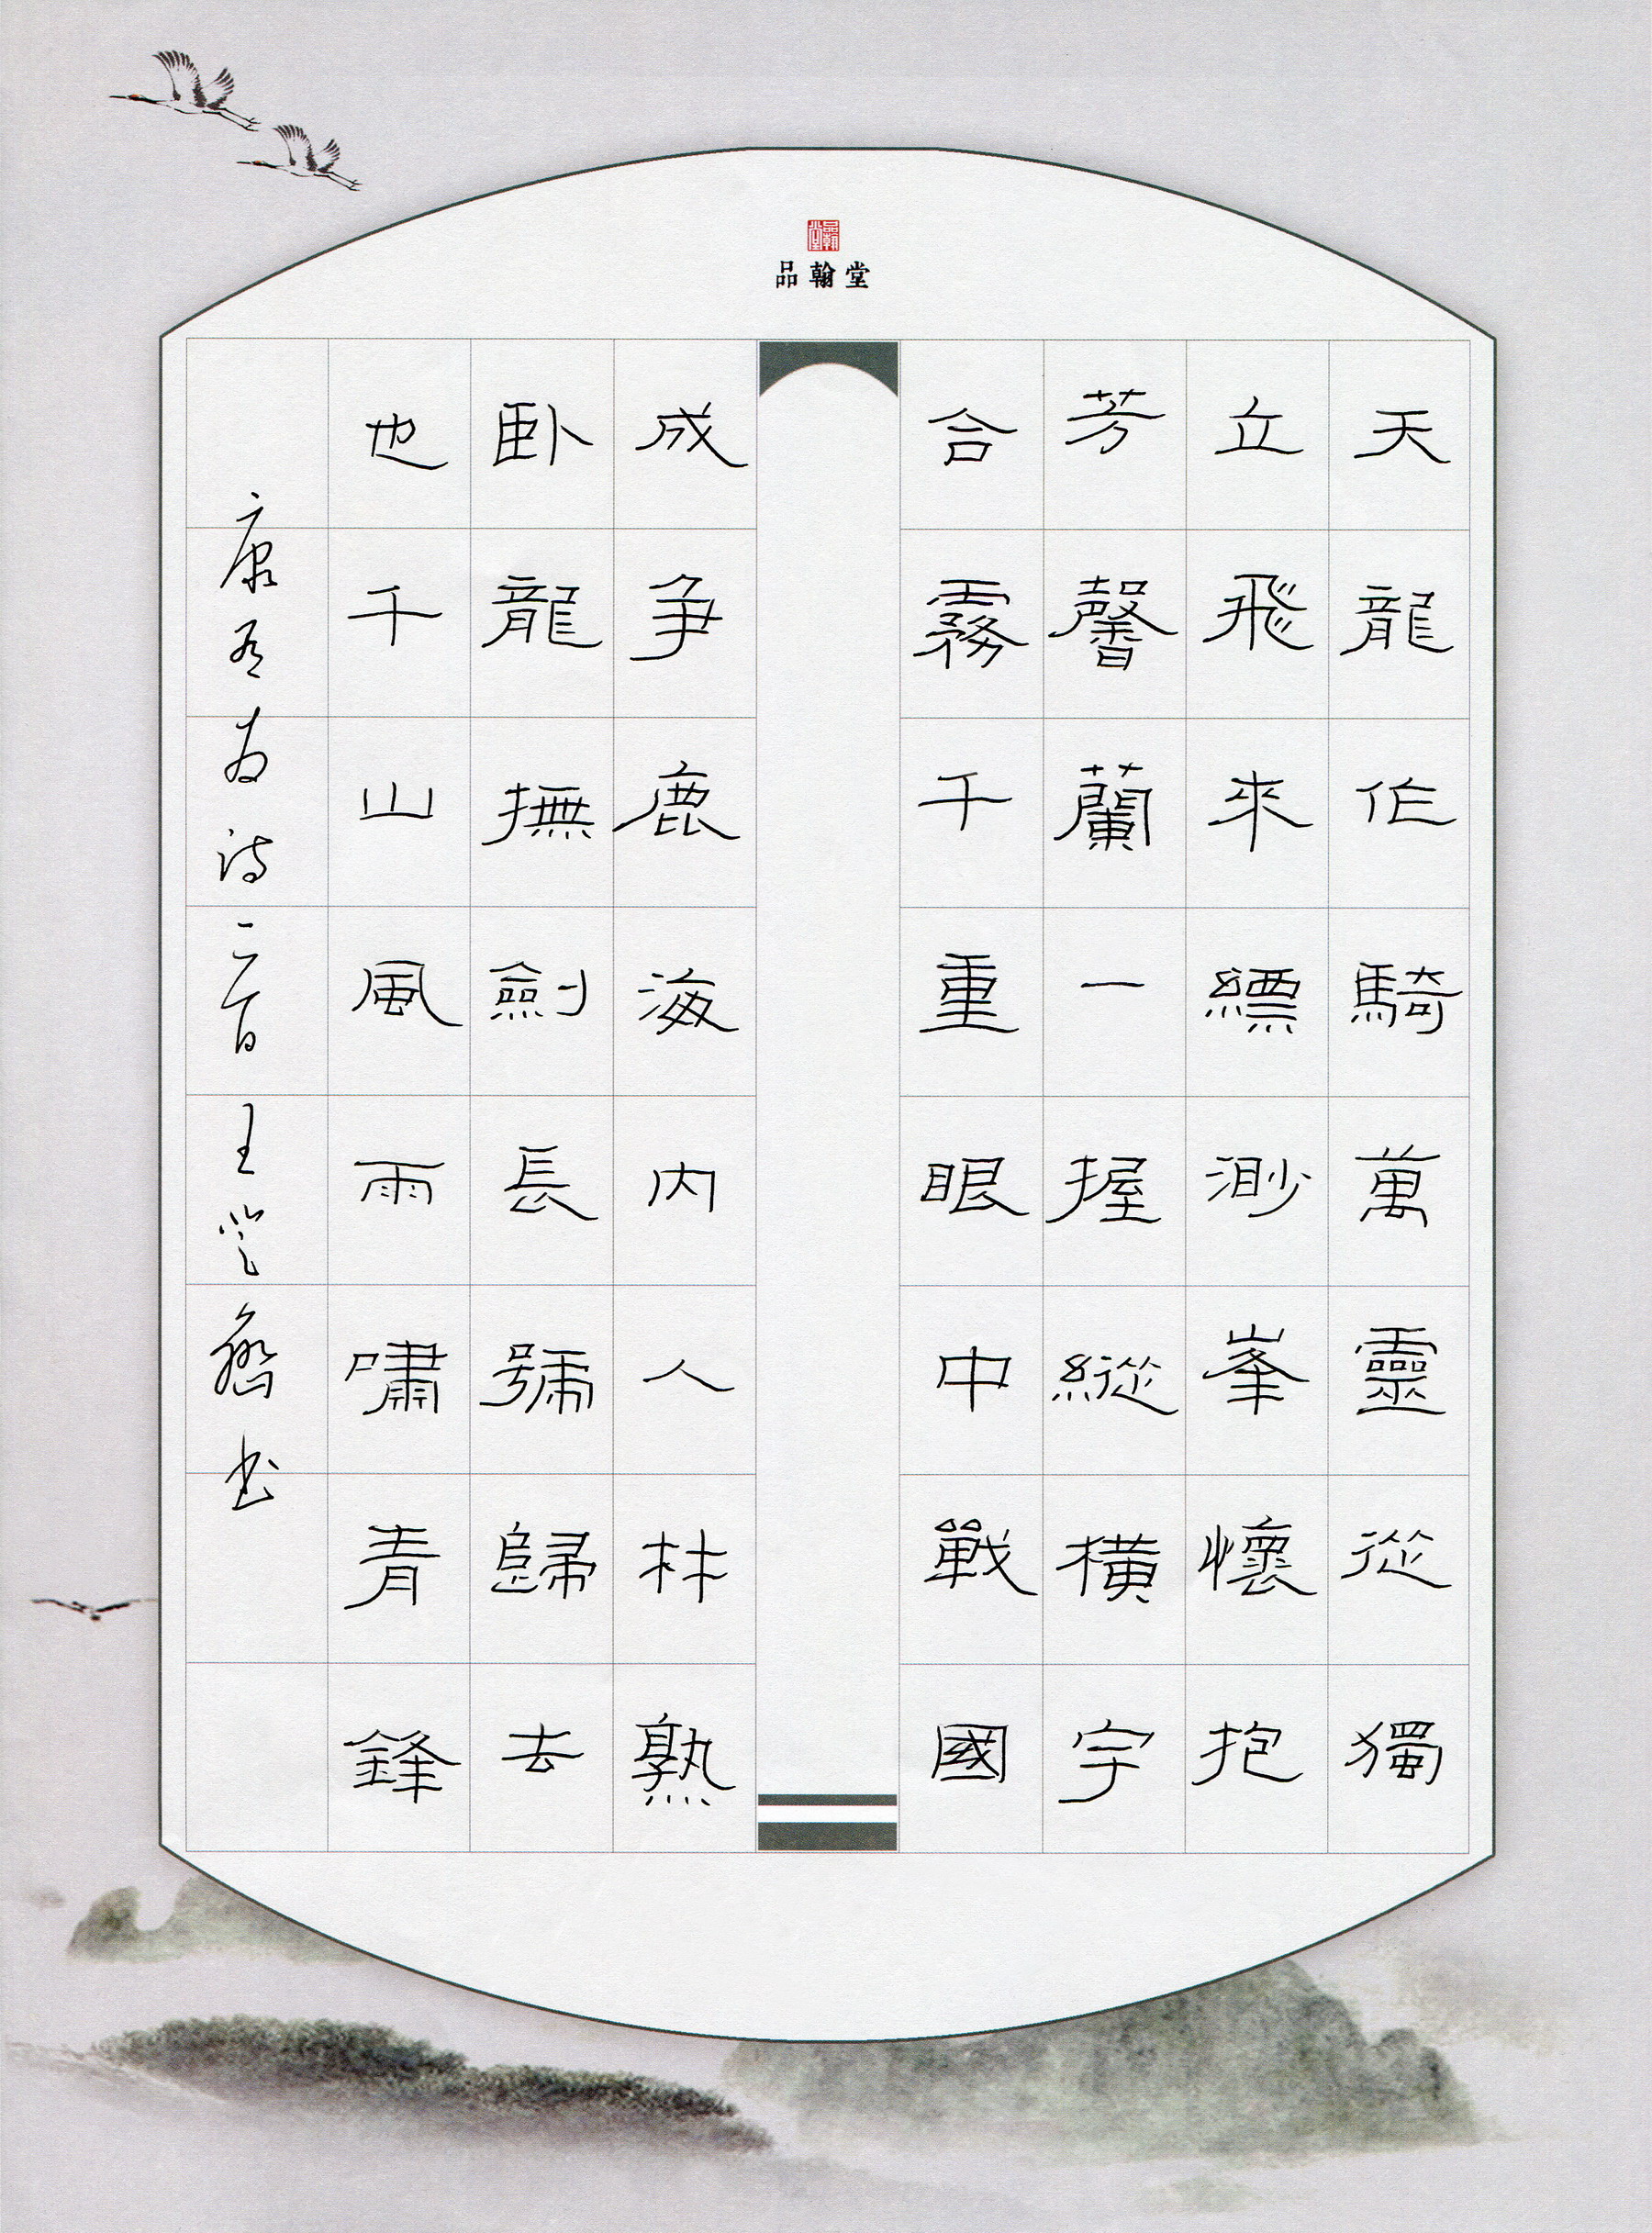 品翰堂
天龍作騎萬靈從獨
立飛來縹渺峯懷抱
芳馨蘭一握縱橫宇
合霧千重眼中戰國
成争鹿海内人林孰
卧龍撫劍長號歸去
也千山風雨嘯青鋒
康有為詩二首